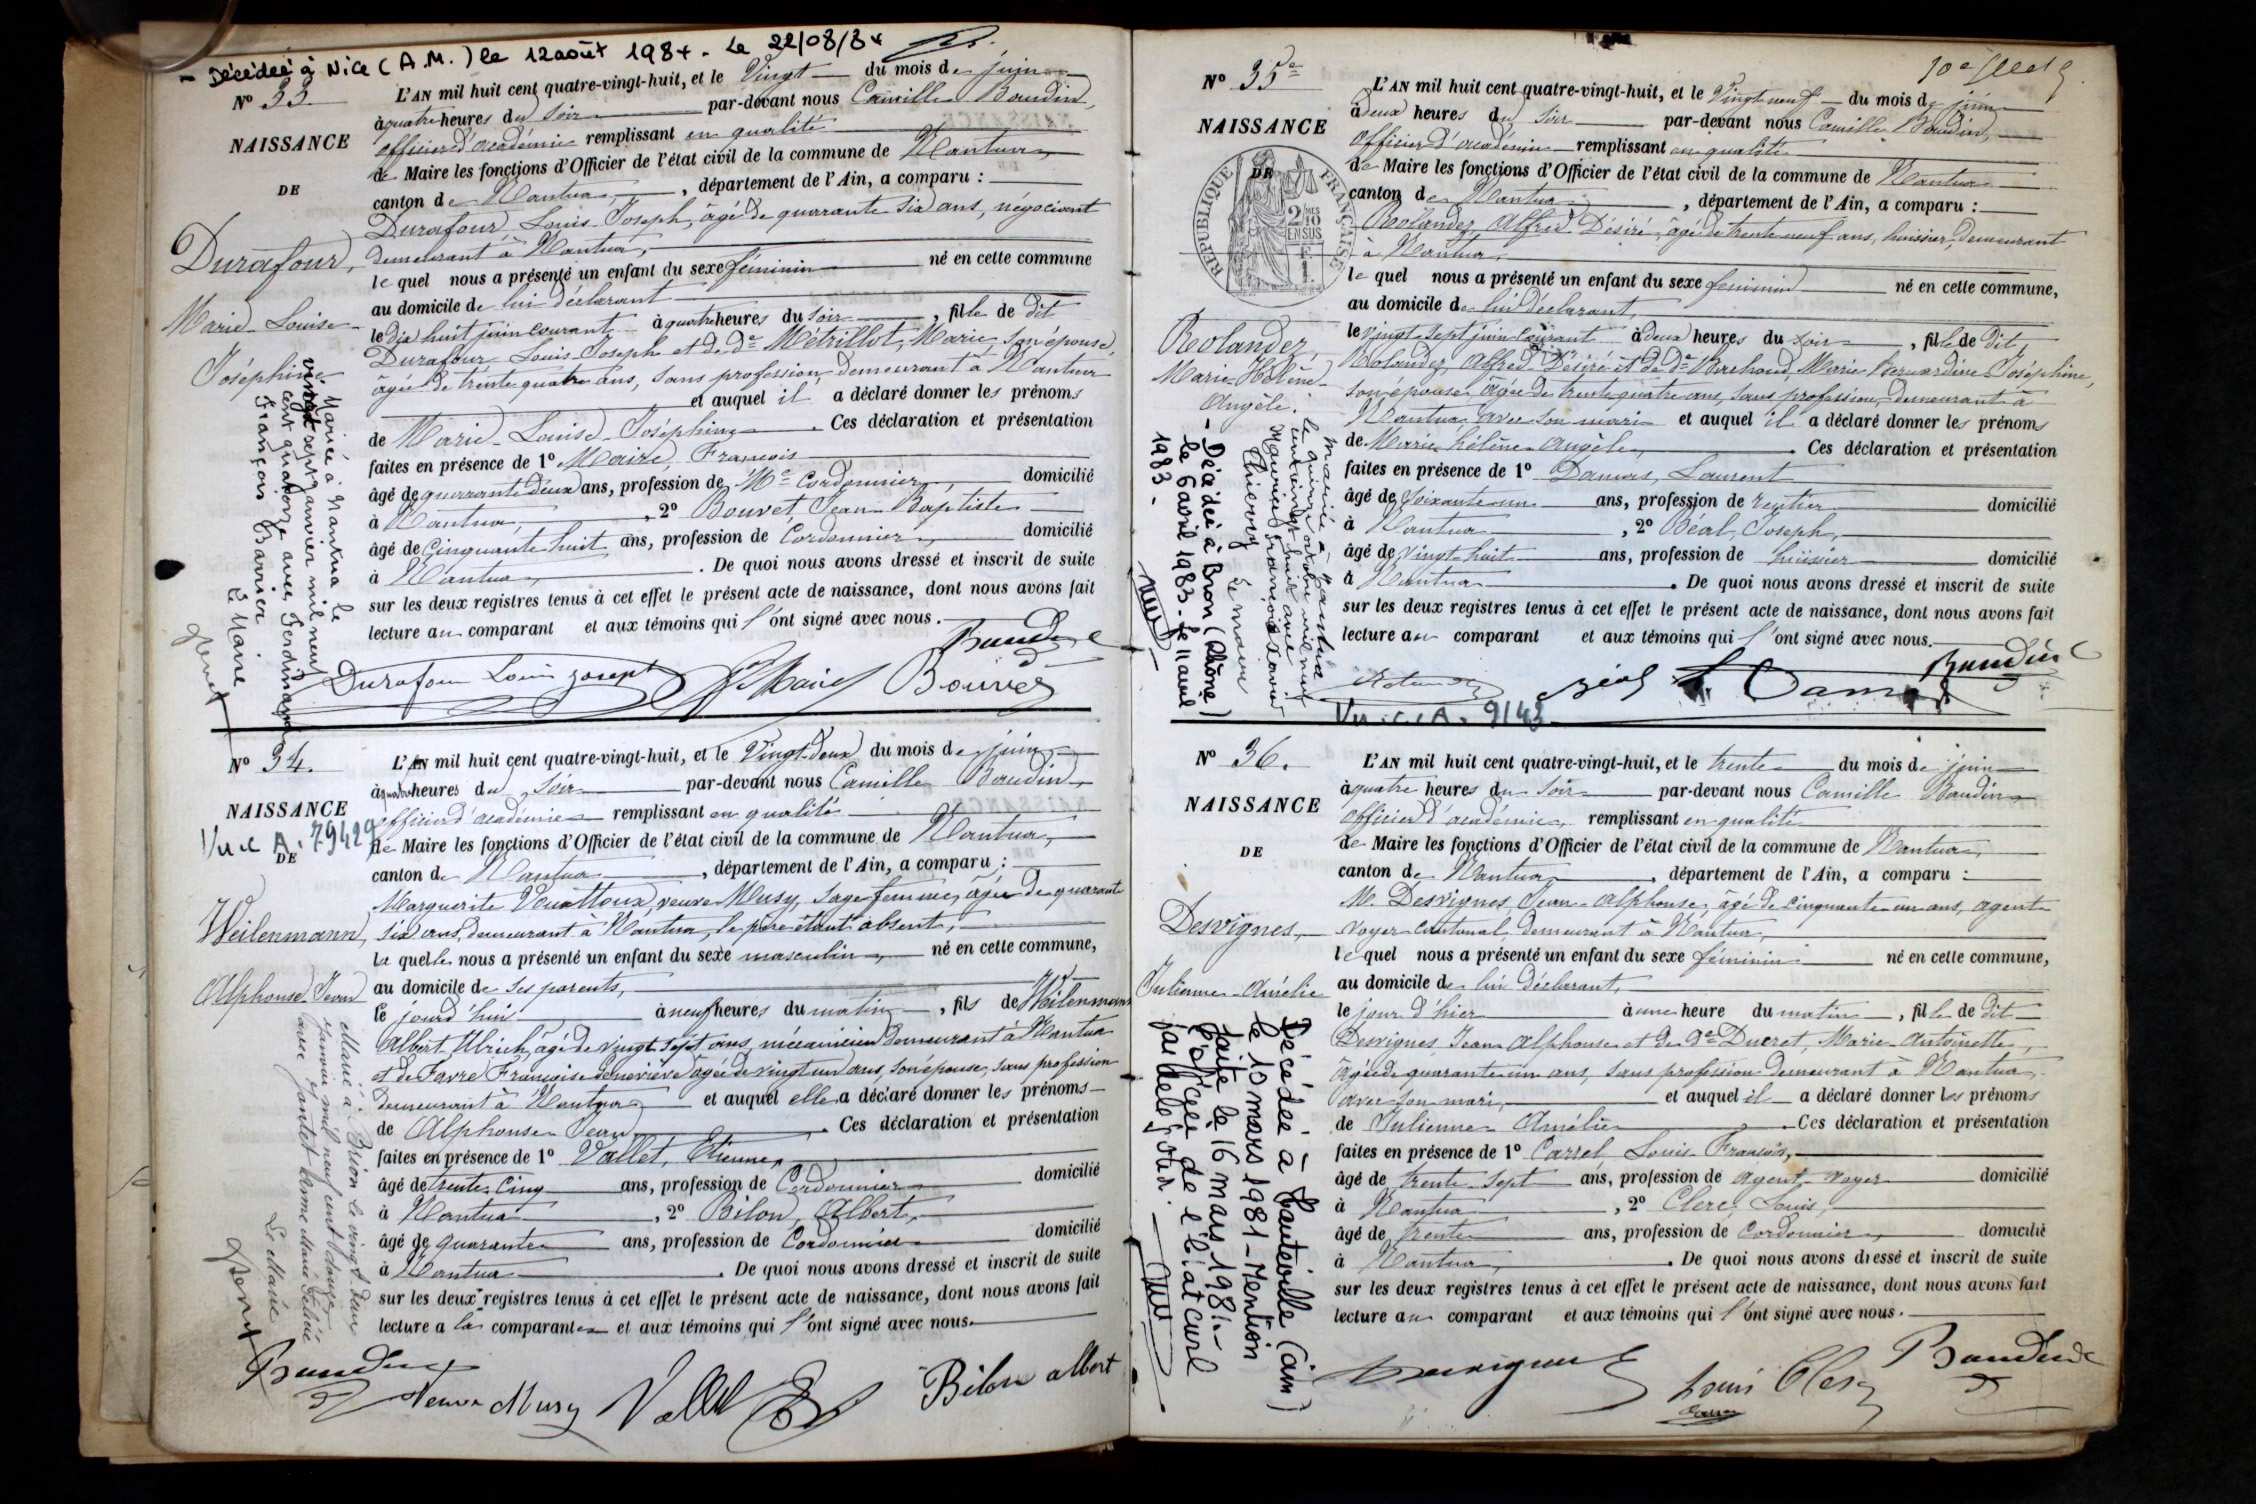 - Décédée à Nice (A.M.) le 12 août 1984 - Le 22/08/84
N° 33
NAISSANCE
DE
Durafour,
Marie-Louise-
Joséphine
Mariée à Nantua le
vingt sept janvier mil neuf
cent quatorze avec Ferdinand
François Barrier
Le Maire
L'AN mil huit cent quatre-vingt-huit, et le Vingt du mois de juin
à quatre heures du soir par-devant nous Camille Baudin,
officier d'académie remplissant en qualité
de Maire les fonctions d'Officier de l'état civil de la commune de Nantua,
canton de Nantua, département de l'Ain, a comparu :
Durafour Louis Joseph, âgé de quarante six ans, négociant
demeurant à Nantua,
le quel nous a présenté un enfant du sexe féminin né en cette commune
au domicile de lui déclarant
le dix huit juin courant à quatre heures du soir, fille de dit
Durafour Louis Joseph et de de Métrillot, Marie, son épouse,
âgée de trente quatre ans, sans profession, demeurant à Nantua
et auquel il a déclaré donner les prénoms
de Marie-Louise-Joséphine. Ces déclaration et présentation
faites en présence de 1° Maire, François
âgé de quarante deux ans, profession de Me Cordonnier, domicilié
à Nantua, 2° Bouvet, Jean-Baptiste
âgé de cinquante huit ans, profession de Cordonnier, domicilié
à Nantua. De quoi nous avons dressé et inscrit de suite
sur les deux registres tenus à cet effet le présent acte de naissance, dont nous avons fait
lecture au comparant et aux témoins qui l'ont signé avec nous.
Baudin
Durafour Louis Joseph Maire Bouvet
N° 34.
NAISSANCE
DE
Vu.c A. 79429
Weilenmann,
Alphonse Jean
Marié à Brion le vingt deux
janvier mil neuf cent douze
avec Jantet Anne Marie
Le Maire
L'AN mil huit cent quatre-vingt-huit, et le Vingt-deux du mois de juin
à quatre heures du soir par-devant nous Camille Baudin,
officier d'académie remplissant en qualité
de Maire les fonctions d'Officier de l'état civil de la commune de Nantua,
canton de Nantua, département de l'Ain, a comparu :
Marguerite veuve Musy, sage femme, âgée de quarante
six ans, demeurant à Nantua, le père étant absent,
la quelle nous a présenté un enfant du sexe masculin, né en cette commune,
au domicile de ses parents,
le jourd'hui à neuf heures du matin, fils de Weilenmann
Albert Ulrich, âgé de vingt sept ans, mécanicien demeurant à Nantua
et de Favre Françoise Geneviève âgée de vingt un ans, son épouse, sans profession
demeurant à Nantua et auquel elle a déclaré donner les prénoms
de Alphonse Jean. Ces déclaration et présentation
faites en présence de 1° Vallet, Etienne,
âgé de trente cinq ans, profession de Cordonnier domicilié
à Nantua, 2° Bilon, Albert,
âgé de quarante ans, profession de Cordonnier domicilié
à Nantua. De quoi nous avons dressé et inscrit de suite
sur les deux registres tenus à cet effet le présent acte de naissance, dont nous avons fait
lecture a la comparante et aux témoins qui l'ont signé avec nous.
Baudin
Veuve Musy Vallet Bilon albert
N° 35
NAISSANCE
DE
RÉPUBLIQUE FRANÇAISE
2/10 EN SUS
Rolandez,
Marie-Hélène-
Angèle.
Mariée à Nantua
le quinze octobre mil neuf
cent vingt huit avec
Maurice François Xavier
Thierry
Le maire
- Décédée à Bron (Rhône)
le 6 avril 1983 - le 11 avril
1983 -
L'AN mil huit cent quatre-vingt-huit, et le Vingt neuf du mois de juin
à deux heures du soir par-devant nous Camille Baudin,
officier d'académie remplissant en qualité
de Maire les fonctions d'Officier de l'état civil de la commune de Nantua
canton de Nantua, département de l'Ain, a comparu :
Rolandez, Alfred Désiré, âgé de trente neuf ans, huissier, demeurant
à Nantua,
le quel nous a présenté un enfant du sexe féminin né en cette commune,
au domicile de lui déclarant,
le vingt-sept juin courant à deux heures du soir, fille de dit,
Rolandez, Alfred-Désiré et de de Berchoud, Marie Bernardine Joséphine,
son épouse, âgée de trente quatre ans, sans profession, demeurant à
Nantua avec son mari et auquel il a déclaré donner les prénoms
de Marie-hélène-Angèle. Ces déclaration et présentation
faites en présence de 1° Damas, Laurent
âgé de soixante un ans, profession de rentier domicilié
à Nantua, 2° Béal, Joseph,
âgé de vingt-huit ans, profession de huissier domicilié
à Nantua. De quoi nous avons dressé et inscrit de suite
sur les deux registres tenus à cet effet le présent acte de naissance, dont nous avons fait
lecture au comparant et aux témoins qui l'ont signé avec nous.
Baudin
Béal Damas
Vu.c.A. 9143
N° 36.
NAISSANCE
DE
Desvignes,
Julienne-Amélie
Décédée à Hauteville (Ain)
le 10 mars 1981 - Mention
faite le 16 mars 1981 -
l'officier de l'état civil
par délégation.
L'AN mil huit cent quatre-vingt-huit, et le trente du mois de juin
à quatre heures du soir par-devant nous Camille Baudin
officier d'académie, remplissant en qualité
de Maire les fonctions d'Officier de l'état civil de la commune de Nantua,
canton de Nantua, département de l'Ain, a comparu :
M. Desvignes, Jean-Alphonse, âgé de cinquante un ans, agent
voyer cantonal, demeurant à Nantua,
le quel nous a présenté un enfant du sexe féminin né en cette commune,
au domicile de lui déclarant,
le jour d'hier à une heure du matin, fille de dit
Desvignes, Jean Alphonse et de de Ducret, Marie-Antoinette,
âgée de quarante un ans, sans profession demeurant à Nantua
avec son mari, et auquel il a déclaré donner les prénoms
de Julienne Amélie. Ces déclaration et présentation
faites en présence de 1° Carrel Louis François,
âgé de trente-sept ans, profession de agent-voyer domicilié
à Nantua, 2° Clerc, Louis,
âgé de trente ans, profession de Cordonnier, domicilié
à Nantua. De quoi nous avons dressé et inscrit de suite
sur les deux registres tenus à cet effet le présent acte de naissance, dont nous avons fait
lecture au comparant et aux témoins qui l'ont signé avec nous.
Desvignes Louis Clerc Baudin